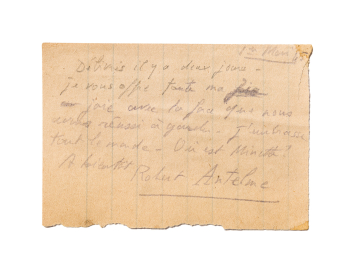 1er Mai 45
Détenus il y a deux jours -
je vous offre toute ma
joie avec la foi que nous
avons réussi à garder. J'embrasse
tout le monde - Où est Minette?
A bientôt
Robert Antelme